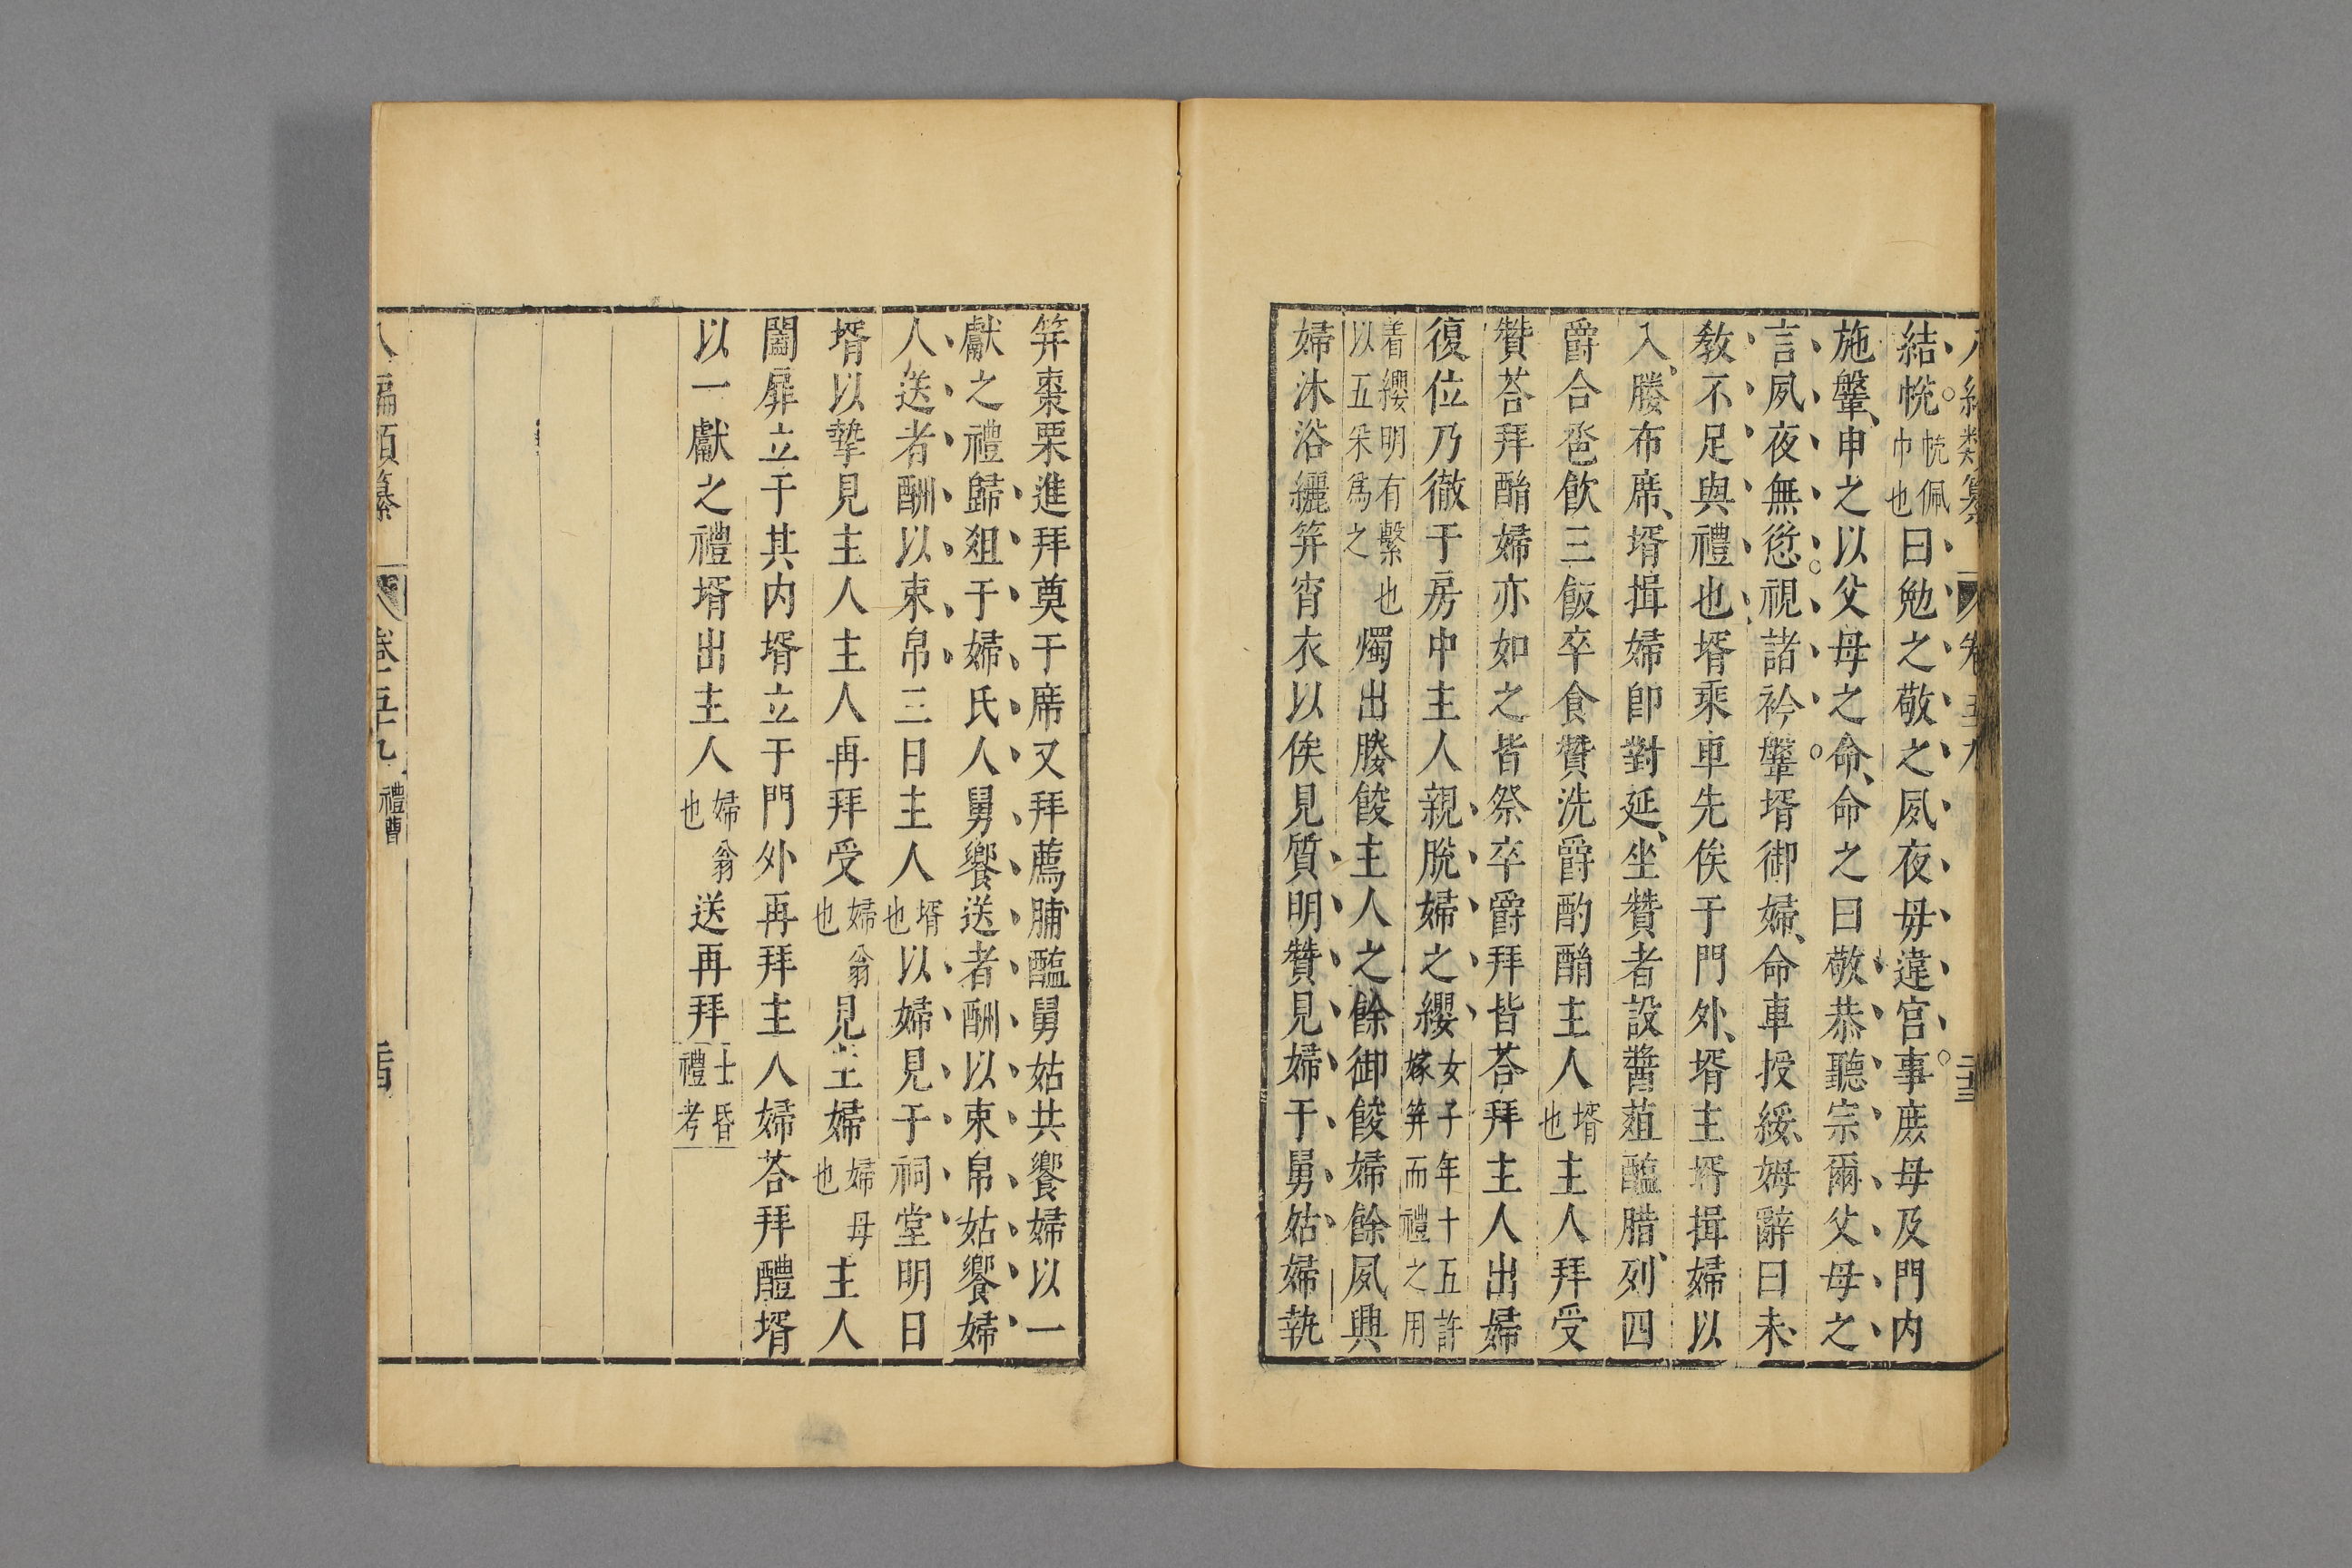 結帨帨佩巾也曰勉之敬之夙夜毋違宮事庶母及門内
施鞶申之以父母之命命之曰敬恭聽宗爾父母之
言夙夜無愆視諸衿鞶壻御婦命車授綏姆辭曰未
教不足與禮也壻乘車先俟于門外壻主壻揖婦以
入媵布席壻揖婦卽對延坐贊者設醬菹醢腊列四
爵合巹飲三飯卒食贊洗爵酌酳主人壻也主人拜受
贊荅拜酳婦亦如之皆祭卒爵拜皆荅拜主人出婦
復位乃徹于房中主人親脫婦之纓女子年十五許嫁笄而禮之用
着纓明有繫也以五采爲之燭出媵餕主人之餘御餕婦餘夙興
婦沐浴纚笄宵衣以俟見質明贊見婦于舅姑婦執
笄棗栗進拜奠于席又拜薦脯醢舅姑共饗婦以一
獻之禮歸俎于婦氏人舅饗送者酬以束帛姑饗婦
人送者酬以束帛三日主人壻也以婦見于祠堂明日
壻以摯見主人主人再拜受婦翁也見主婦婦母也主人
闔扉立于其内壻立于門外再拜主人婦荅拜醴壻
以一獻之禮壻出主人婦翁也送再拜士昏禮考
八編類纂 卷五十九 禮曹